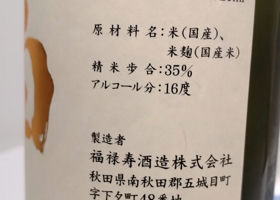 原材料名:米(国産)、
米麹(国産米)
精米歩合:35%
アルコール分:16度
製造者
福禄寿酒造株式会社
秋田県南秋田郡五城目町
字下タ町48番地